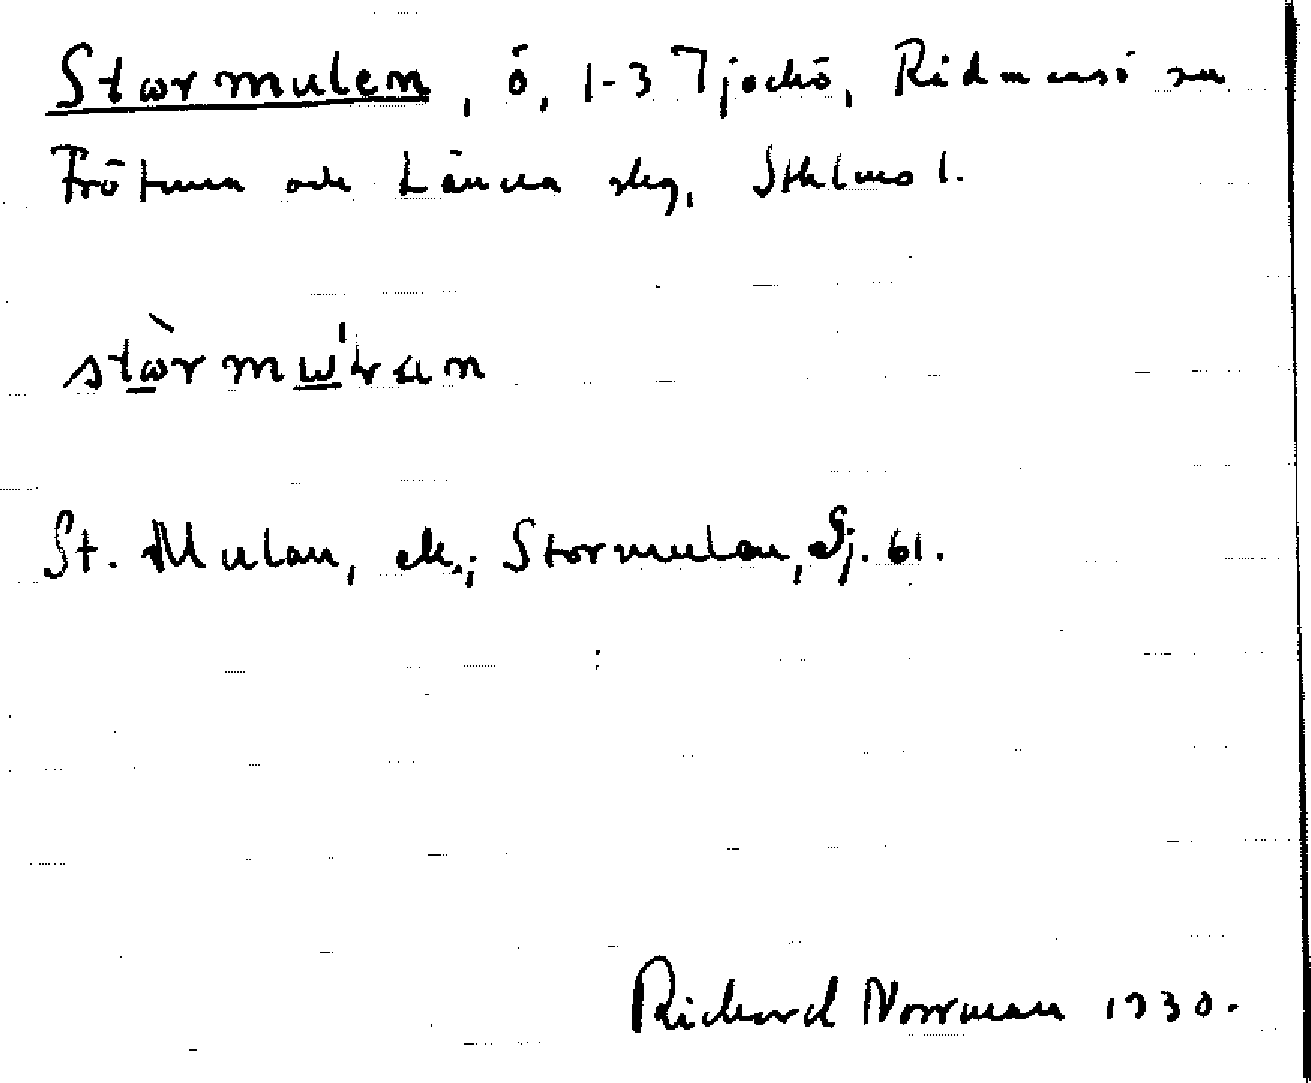 Stormulen, ö, 1-3 Tjockö, Rådmansö sn
Frötuna och Länna skg, Sthlms l.
St. Mulan, ek.; Stormulan, Gj. 61.
Richard Norrman 1930.